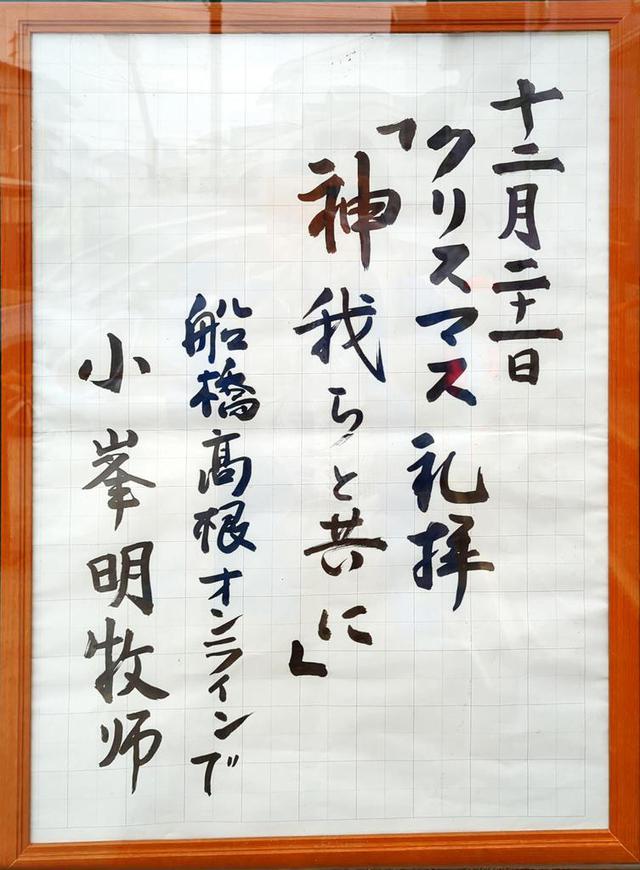 十二月二十一日
クリスマス礼拝
「神 我らと共に」
船橋高根オンラインで
小峯明牧師